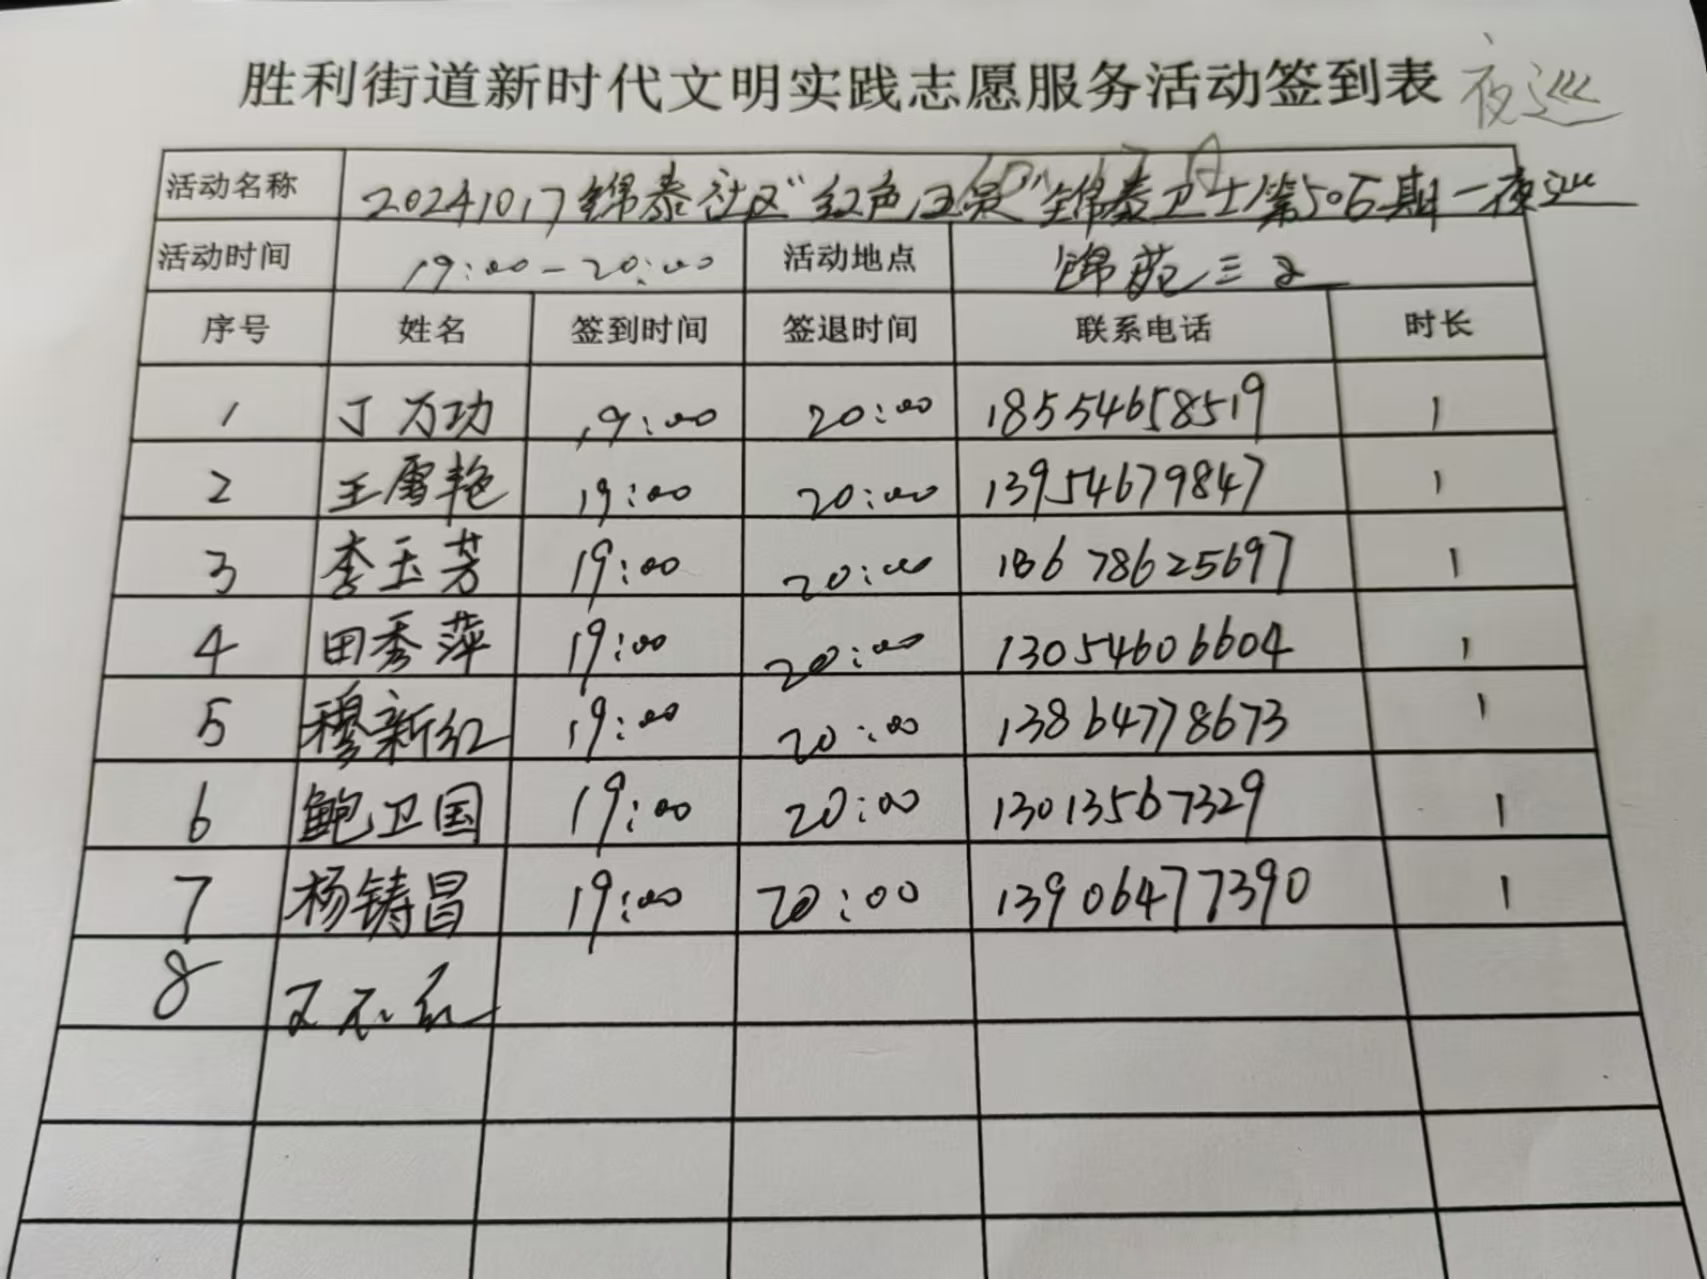 胜利街道新时代文明实践志愿服务活动签到表 夜巡
活动名称 20241017锦泰社区"红色卫员"锦泰卫士第506期一夜巡
活动时间 19:00-20:00 活动地点 锦苑三区
序号 姓名 签到时间 签退时间 联系电话 时长
1 丁万功 19:00 20:00 18554658519 1
2 王雪艳 19:00 20:00 13954679847 1
3 李玉芳 19:00 20:00 18678625697 1
4 田秀萍 19:00 20:00 13054606604 1
5 穆新红 19:00 20:00 13864778673 1
6 鲍卫国 19:00 20:00 13013567329 1
7 杨铸昌 19:00 20:00 13906477390 1
8